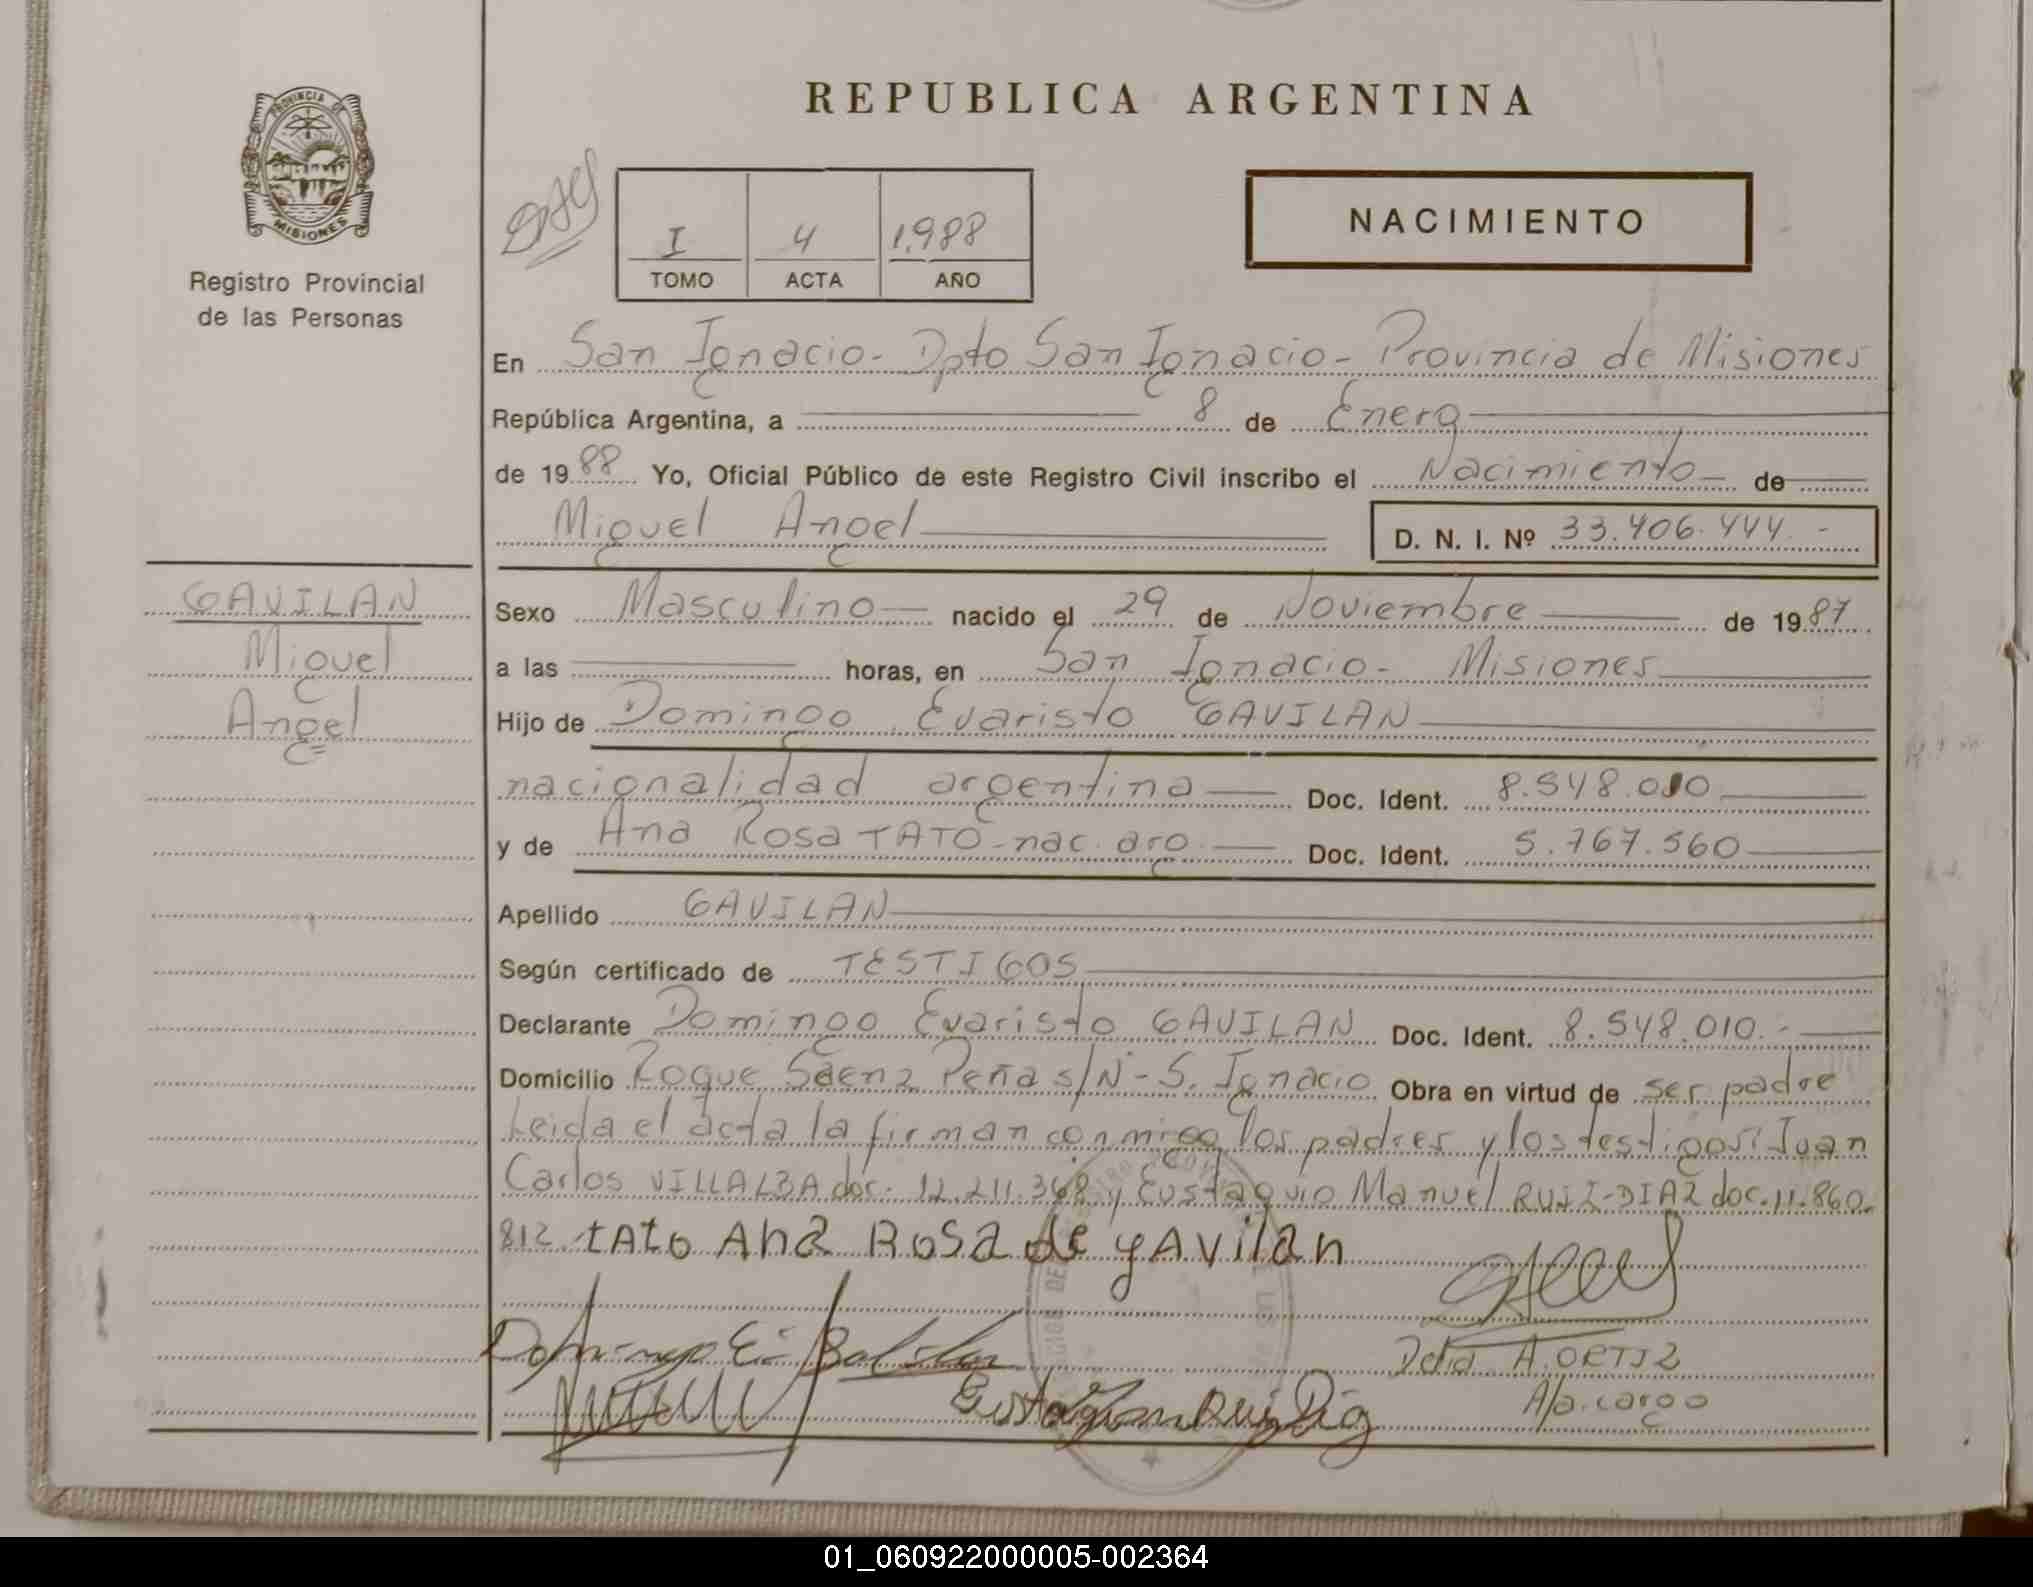 PROVINCIA DE
MISIONES
Registro Provincial
de las Personas
REPUBLICA ARGENTINA
I 4 1.988
TOMO ACTA AÑO
NACIMIENTO
En San Ignacio - Dpto San Ignacio - Provincia de Misiones
República Argentina, a 8 de Enero
de 1988 Yo, Oficial Público de este Registro Civil inscribo el Nacimiento de
Miguel Angel D. N. I. Nº 33.406.444.-
GAVILAN
Miguel
Angel
Sexo Masculino nacido el 29 de Noviembre de 1987
a las horas, en San Ignacio - Misiones
Hijo de Domingo Evaristo GAVILAN
nacionalidad argentina Doc. Ident. 8.548.010
y de Ana Rosa TATO - nac. arg. Doc. Ident. 5.767.560
Apellido GAVILAN
Según certificado de TESTIGOS
Declarante Domingo Evaristo GAVILAN Doc. Ident. 8.548.010.-
Domicilio Roque Saenz Peña s/N - S. Ignacio Obra en virtud de ser padre
Leida el acta la firman conmigo los padres y los testigos: Juan
Carlos VILLALBA doc. 12.211.368 y Eustaquio Manuel RUIZ-DIAZ doc. 11.860.
812 tAto AnA RoSa de gAvilan
A. ORTIZ
A/a. cargo
01_060922000005-002364